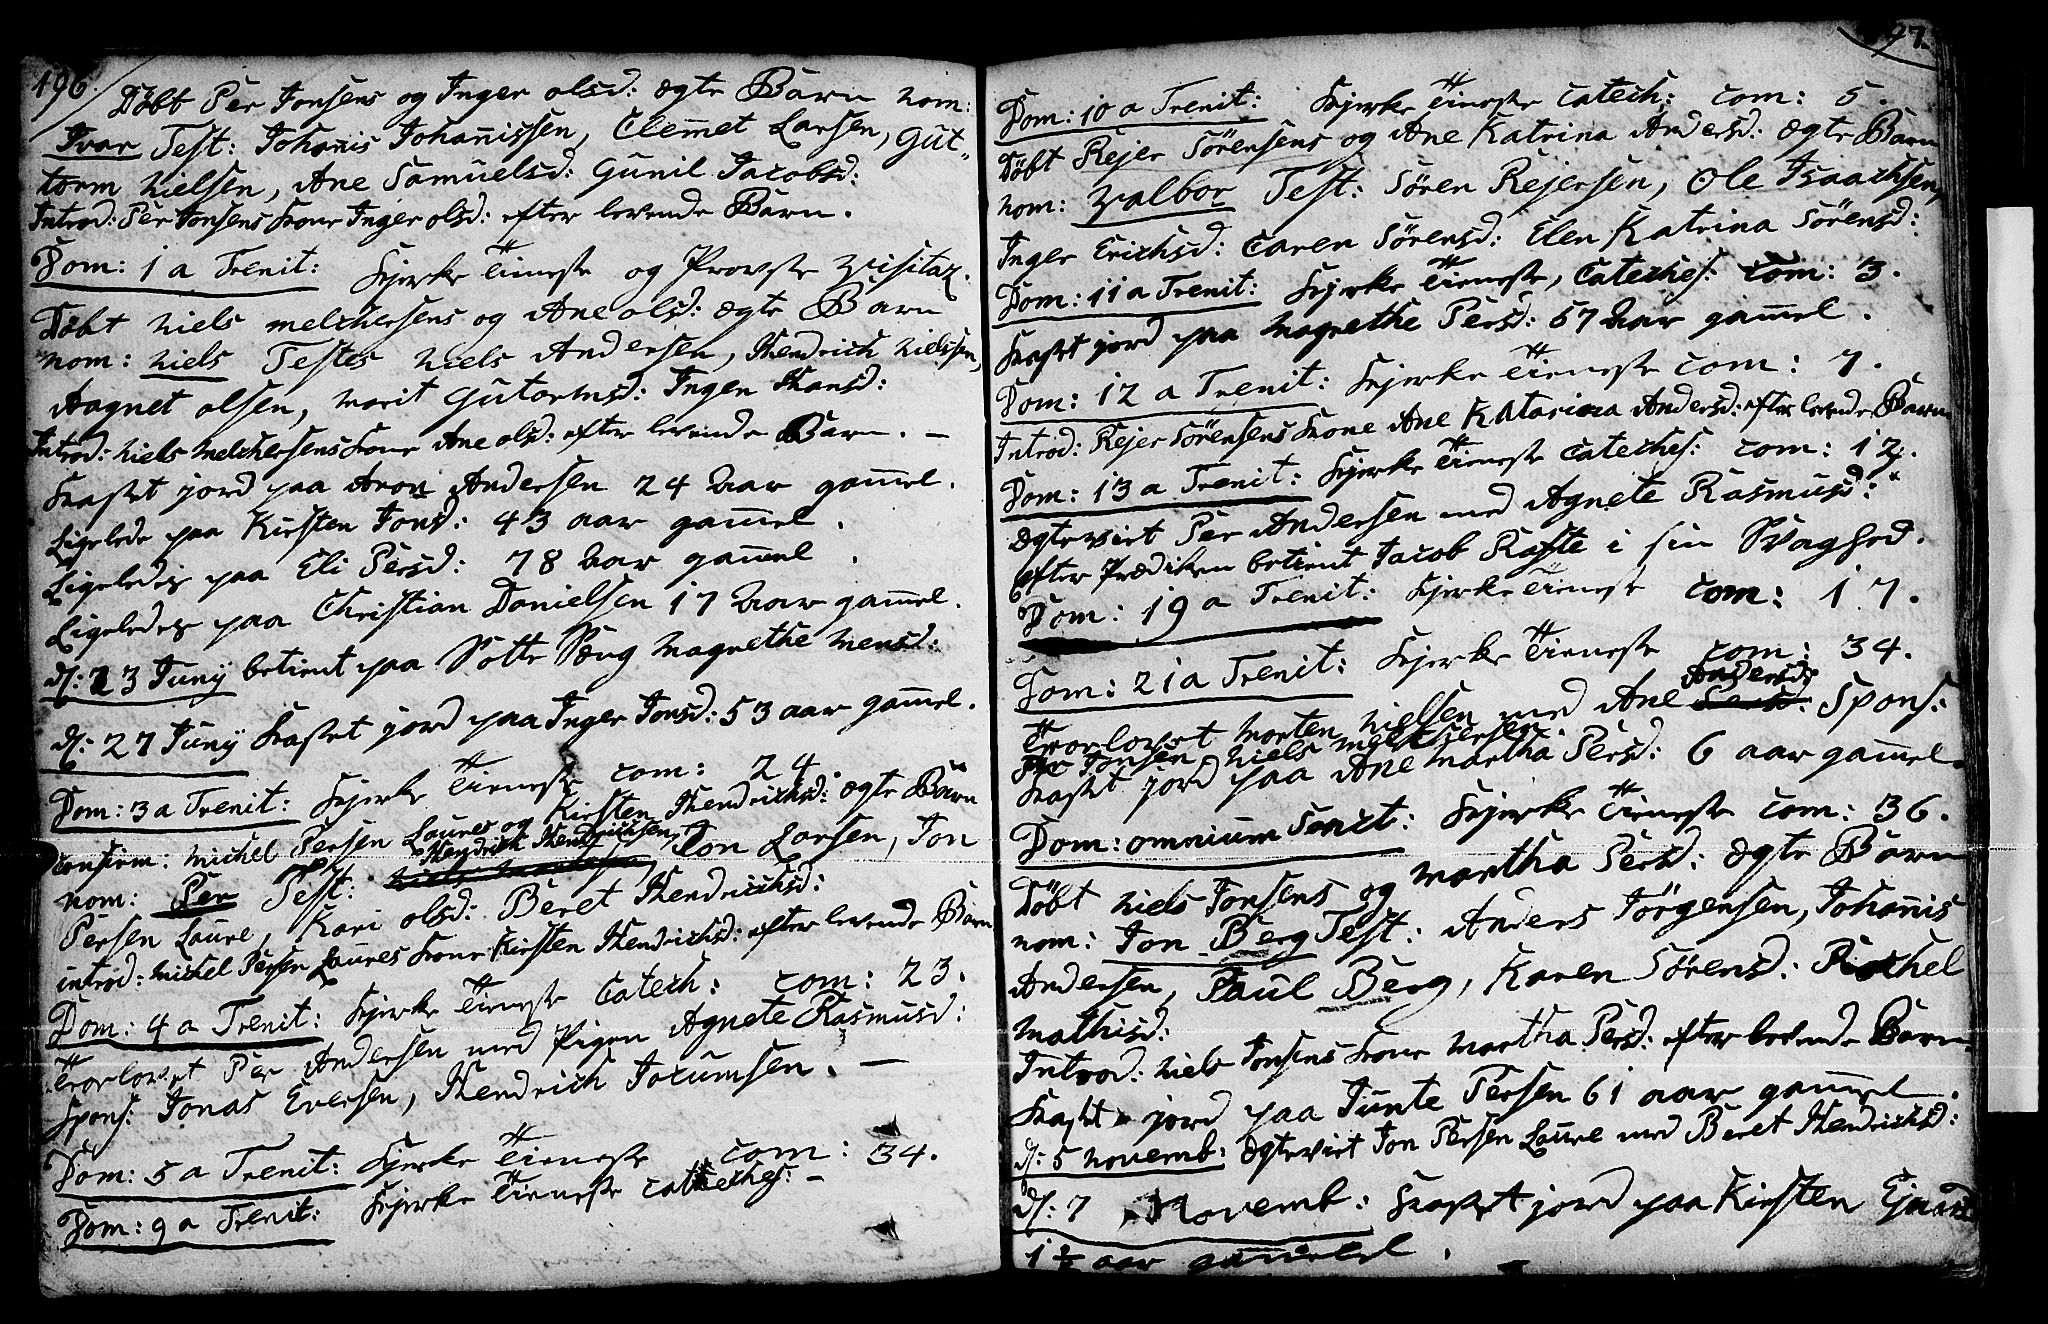 196.
Döbt Per Jonsens og Inger olsd: ægte Barn nom:
Ivar Test: Johanis Johan̄issen, Clem̄et Larsen, Gut-
torm Nielsen, Ane Samuelsd: Gunil Jacobsd:
Introd: Per Jonsens Kone Inger olsd: efter levende Barn.
Dom: 1 a Trenit: Kjerke Tieneste og Provste Visitaz.
Döbt Niels Melchersens og Ane olsd: ægte Barn
nom: Niels Testes Niels Andersen, Hendrich Nielsen,
Aagnet olsen, Marit Gutormsd: Inger Hansd:
Introd: Niels Melchersens Kone Ane olsd: efter levende Barn. –
Kastet jord paa Aron Andersen 24 Aar gam̄el.
Ligelede paa Kirsten Jonsd: 43 aar gam̄el.
Ligeledes paa Eli Persd: 78 Aar gam̄el.
Ligeledes paa Christian Danielsen 17 Aar gam̄el.
d: 23 Juny betient paa Sotte Sæng Magrethe Mensd:
d: 27 Juny Kastet jord paa Inger Jonsd: 53 aar gam̄el.
Dom: 3 a Trenit: Kjerke Tieneste com: 24.
Confirm: Michel Persen Laures og Kirsten Hendrichsd: ægte Barn
Hendrich Hendrichsen,
nom: Per Test: Jon Larsen, Jon
Persen Laure, Kari olsd: Beret Hendrichsd:
introd: Michel Persen Laures Kone Kirsten Hendrichsd: efter levende Barn
Dom: 4 a Trenit: Kjerke Tieneste Catech: com: 23.
Trorlovet Per Andersen med Pigen Agnete Rasmusd:
Spons: Jonas Eversen, Hendrich Jocumsen. –
Dom: 5 a Trenit: Kjerke Tieneste com: 34.
Dom: 9 a Trenit: Kjerke Tieneste Catheches: –
97.
Dom: 10 a Trenit: Kjerke Tieneste Catech: com: 5.
Döbt Rejer Sörensens og Ane Katrina Andersd: ægte Barn
nom: Valbor Test: Sören Rejersen, Ole Isaachsen,
Inger Erichsd: Caren Sörensd: Elen Katrina Sörensd:
Dom: 11 a Trenit: Kjerke Tieneste, Cateches: Com: 3.
Kastet jord paa Magrethe Persd: 57 Aar gam̄el.
Dom: 12 a Trenit: Kjerke Tieneste com: 7.
Introd: Rejer Sörensens Kone Ane Katarina Andersd: efter levende Barn
Dom: 13 a Trenit: Kjerke Tieneste Cateches: com: 12.
ægteviet Per Andersen med Agnete Rasmusd:
Efter Prædiken betient Jacob Raste i sin Svaghed.
Dom: 19 a Trenit: Kjerke Tieneste com: 17.
Dom: 21 a Trenit: Kjerke Tieneste com: 34.
Andersd:
Trorlovet Morten Nielsen med Ane Spons:
Per Jonsen Niels Melchersen.
Kastet jord paa Ane Martha Persd: 6 aar gam̄el.
Dom: omnium Sanct: Kjerke Tieneste com: 36.
Döbt Niels Jonsens og Martha Persd: ægte Barn
nom: Jon Berg Test: Anders Jörgensen, Johan̄is
Andersen, Paul Berg, Karen Sörensd: Rachel
Mathisd:
Introd: Niels Jonsens Kone Martha Persd: efter levende Barn.
Kastet jord paa Junte Persen 61 aar gam̄el.
d: 5 Novemb: ægteviet Jon Persen Laure med Beret Hendrichsd:
d: 7 Novemb: Kastet jord paa Kirsten
1 ½ aar gam̄el.